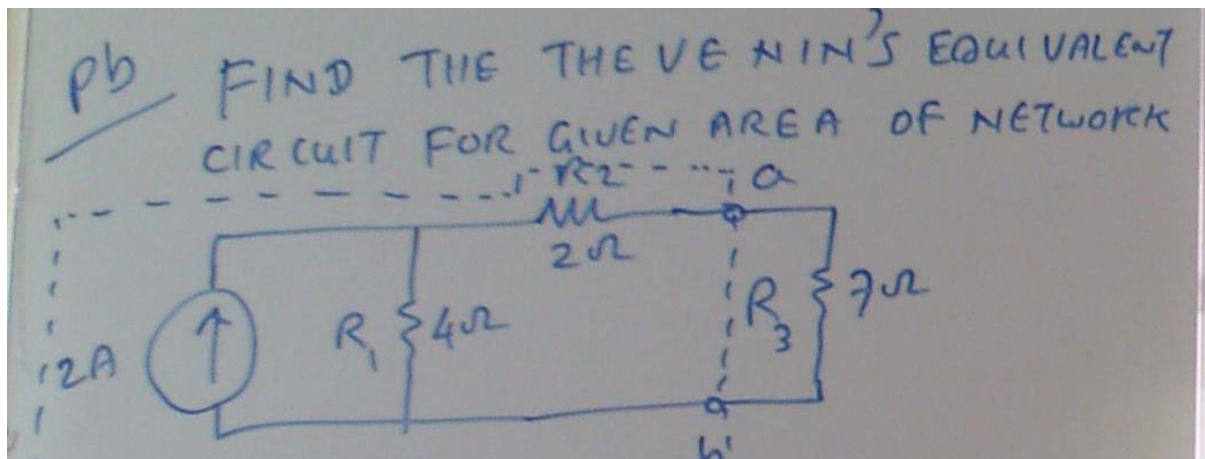 Pb FIND THE THEVENIN'S EQUIVALENT
CIRCUIT FOR GIVEN AREA OF NETWORK
R2 a
2Ω
2A R1 4Ω R3 7Ω
b